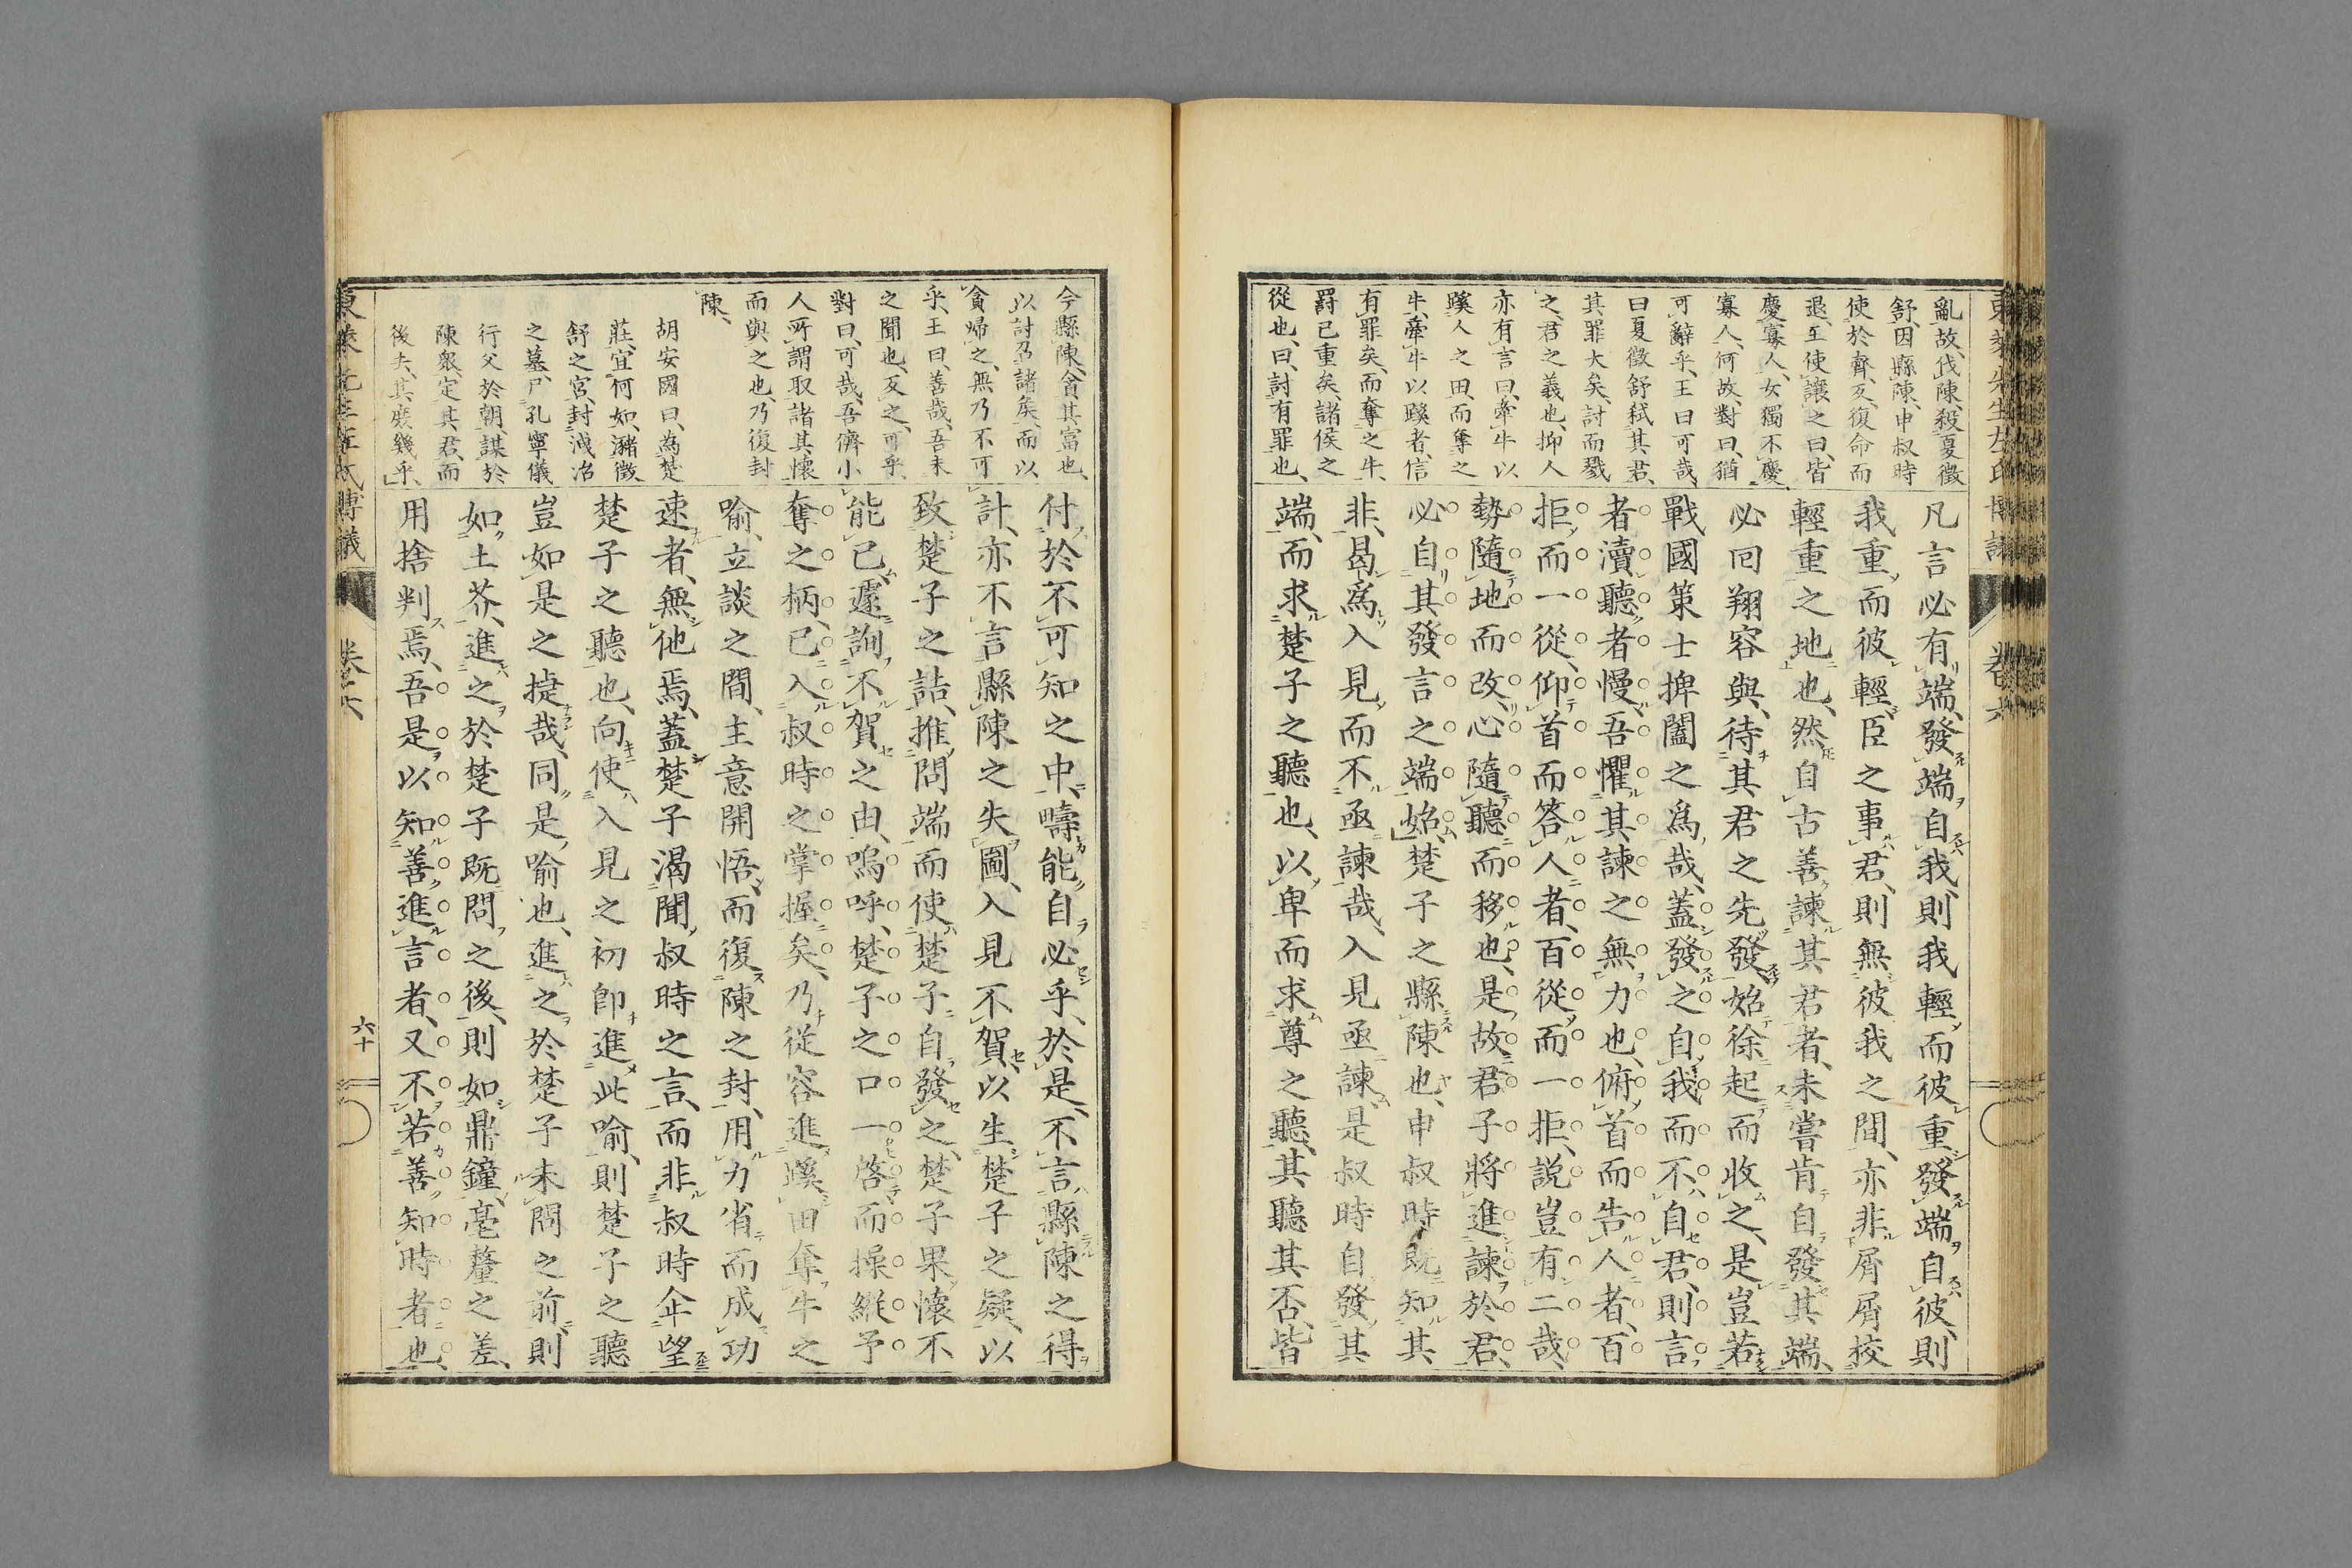 亂故、伐陳、殺夏徵
舒、因縣陳、申叔時
使於齊、反、復命而
退、王使讓之曰、皆
慶寡人、女獨不慶
寡人、何故、對曰、猶
可辭乎、王曰可哉、
曰夏徵舒弒其君、
其罪大矣、討而戮
之、君之義也、抑人
亦有言曰、牽牛以
蹊人之田、而奪之
牛、牽牛以蹊者、信
有罪矣、而奪之牛、
罸已重矣、諸侯之
從也、曰、討有罪也、
凡言必有端、發端自我、則我輕而彼重、發端自彼、則
我重而彼輕、臣之事君、則無彼我之間、亦非屑屑挍
輕重之地也、然自古善諫其君者、未嘗肯自發其端、
必回翔容與、待其君之先發、始徐起而收之、是豈若
戰國策士捭闔之爲哉、蓋發之自我而不自君、則言
者瀆、聽者慢、吾懼其諫之無力也、俯首而告人者、百
拒而一從、仰首而答人者、百從而一拒、説豈有二哉、
勢隨地而改、心隨聽而移也、是故君子將進諫於君、
必自其發言之端始、楚子之縣陳也、申叔時既知其
非、曷爲入見而不亟諫哉、入見亟諫、是叔時自發其
端、而求楚子之聽也、以卑而求尊之聽、其聽其否、皆
今縣陳、貪其富也、
以討召諸矦、而以
貪歸之、無乃不可
乎、王曰、善哉、吾未
之聞也、反之、可乎、
對曰、可哉、吾儕小
人所謂取諸其懷
而與之也、乃復封
陳、
胡安國曰、為楚
莊、宜何如、瀦徵
舒之宮、封洩冶
之墓、尸孔寧儀
行父於朝、謀於
陳衆、定其君、而
後去、其庶幾乎、
付於不可知之中、疇能自必乎、於是、不言縣陳之得
計、亦不言縣陳之失圖、入見不賀、以生楚子之疑、以
致楚子之詰、推問端而使楚子自發之、楚子果懷不
能已、遽詢不賀之由、嗚呼、楚子之口一啓、而操縱予
奪之柄、已入叔時之掌握矣、乃從容進蹊田奪牛之
喻、立談之間、主意開悟、而復陳之封、用力省而成功
速者、無他焉、蓋楚子渴聞叔時之言、而非叔時企望
楚子之聽也、向使入見之初卽進此喻、則楚子之聽
豈如是之捷哉、同是喻也、進之於楚子未問之前、則
如土芥、進之於楚子既問之後、則如鼎鐘、毫釐之差、
用捨判焉、吾是以知善進言者、又不若善知時者也、
東萊先生左氏博議
卷之六
六十